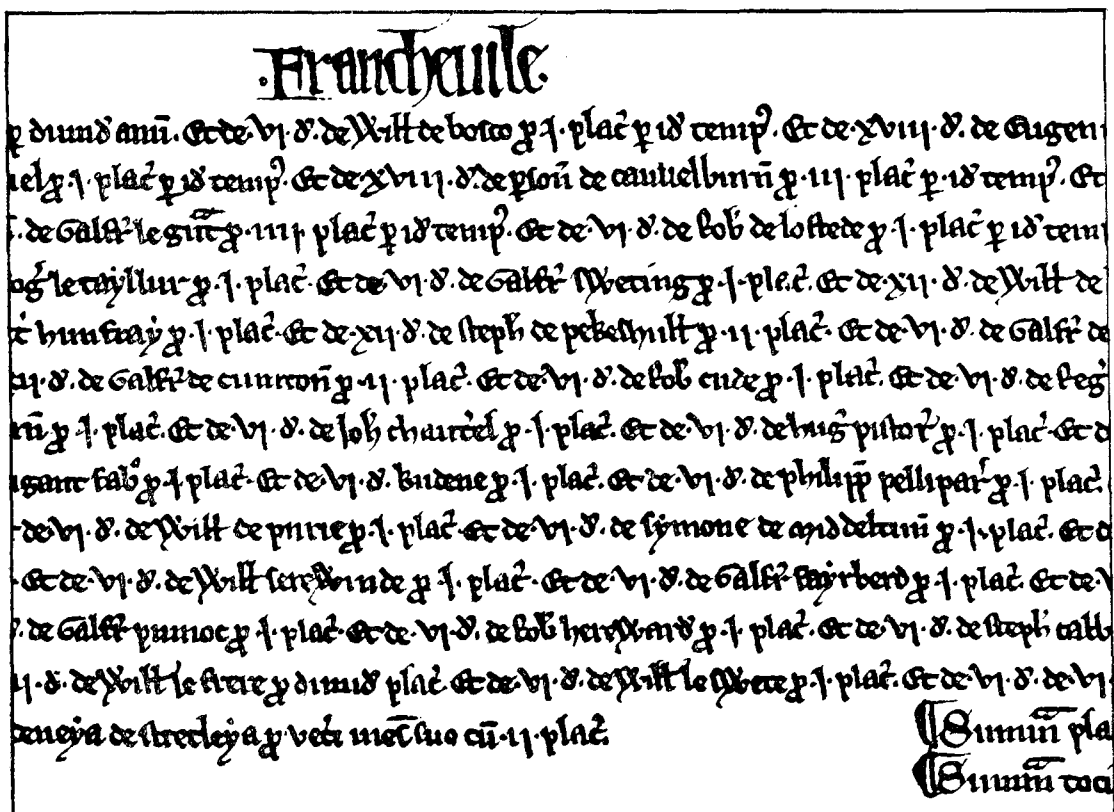 ·Francheuile·
p dimid ann̄. Et de·vi·d̄. de Will de bosco p ·j· plac̄ p id temp. Et de·xviii·d̄. de Eugen
p ·j· plac̄ p id temp. Et de·xviii·d̄. de p ·iii· plac̄ p id temp. Et
de Galfr̄ le p ·iiij· plac̄ p id temp. Et de·vi·d̄. de Rob̄ de loftede p ·j· plac̄ p id tem
le tayllur p ·j· plac̄. Et de·vi·d̄. de Galfr̄ Sweting p ·j· plac̄. Et de·xij·d̄. de Will de
hunfray p ·j· plac̄. Et de·xij·d̄. de steph̄ de p ·ij· plac̄. Et de·vi·d̄. de Galfr̄ de
d̄. de Galfr̄ de p ·ij· plac̄. Et de·vi·d̄. de Rob̄ cude p ·j· plac̄. Et de·vi·d̄. de Reḡ
p ·j· plac̄. Et de·vi·d̄. de Joh̄ p ·j· plac̄. Et de·vi·d̄. de huḡ pistor̄ p ·j· plac̄. Et d
fab̄o p ·j· plac̄. Et de·vi·d̄. p ·j· plac̄. Et de·vi·d̄. de philipp̄ pellipar̄ p ·j· plac̄.
de·vi·d̄. de Will de purie p ·j· plac̄. Et de·vi·d̄. de symone de middeltun̄ p ·j· plac̄. Et d
Et de·vi·d̄. de Will screwinde p ·j· plac̄. Et de·vi·d̄. de Galfr̄ fayrberd p ·j· plac̄. Et de·v
de Galfr̄ pinnoc p ·j· plac̄. Et de·vi·d̄. de Rob̄ hereward p ·j· plac̄. Et de·vi·d̄. de steph̄
d̄. de Will le frere p dimid plac̄. Et de·vi·d̄. de Will le Swete p ·j· plac̄. Et de·vi·d̄. de·vi·
de stretleya p suo cū·ij·plac̄.
¶Summ̄ pla
¶Summ̄ toci